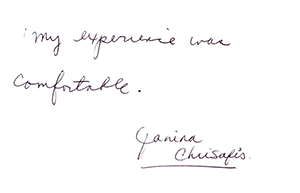 my experience was
comfortable.
Janina
Chrisafis